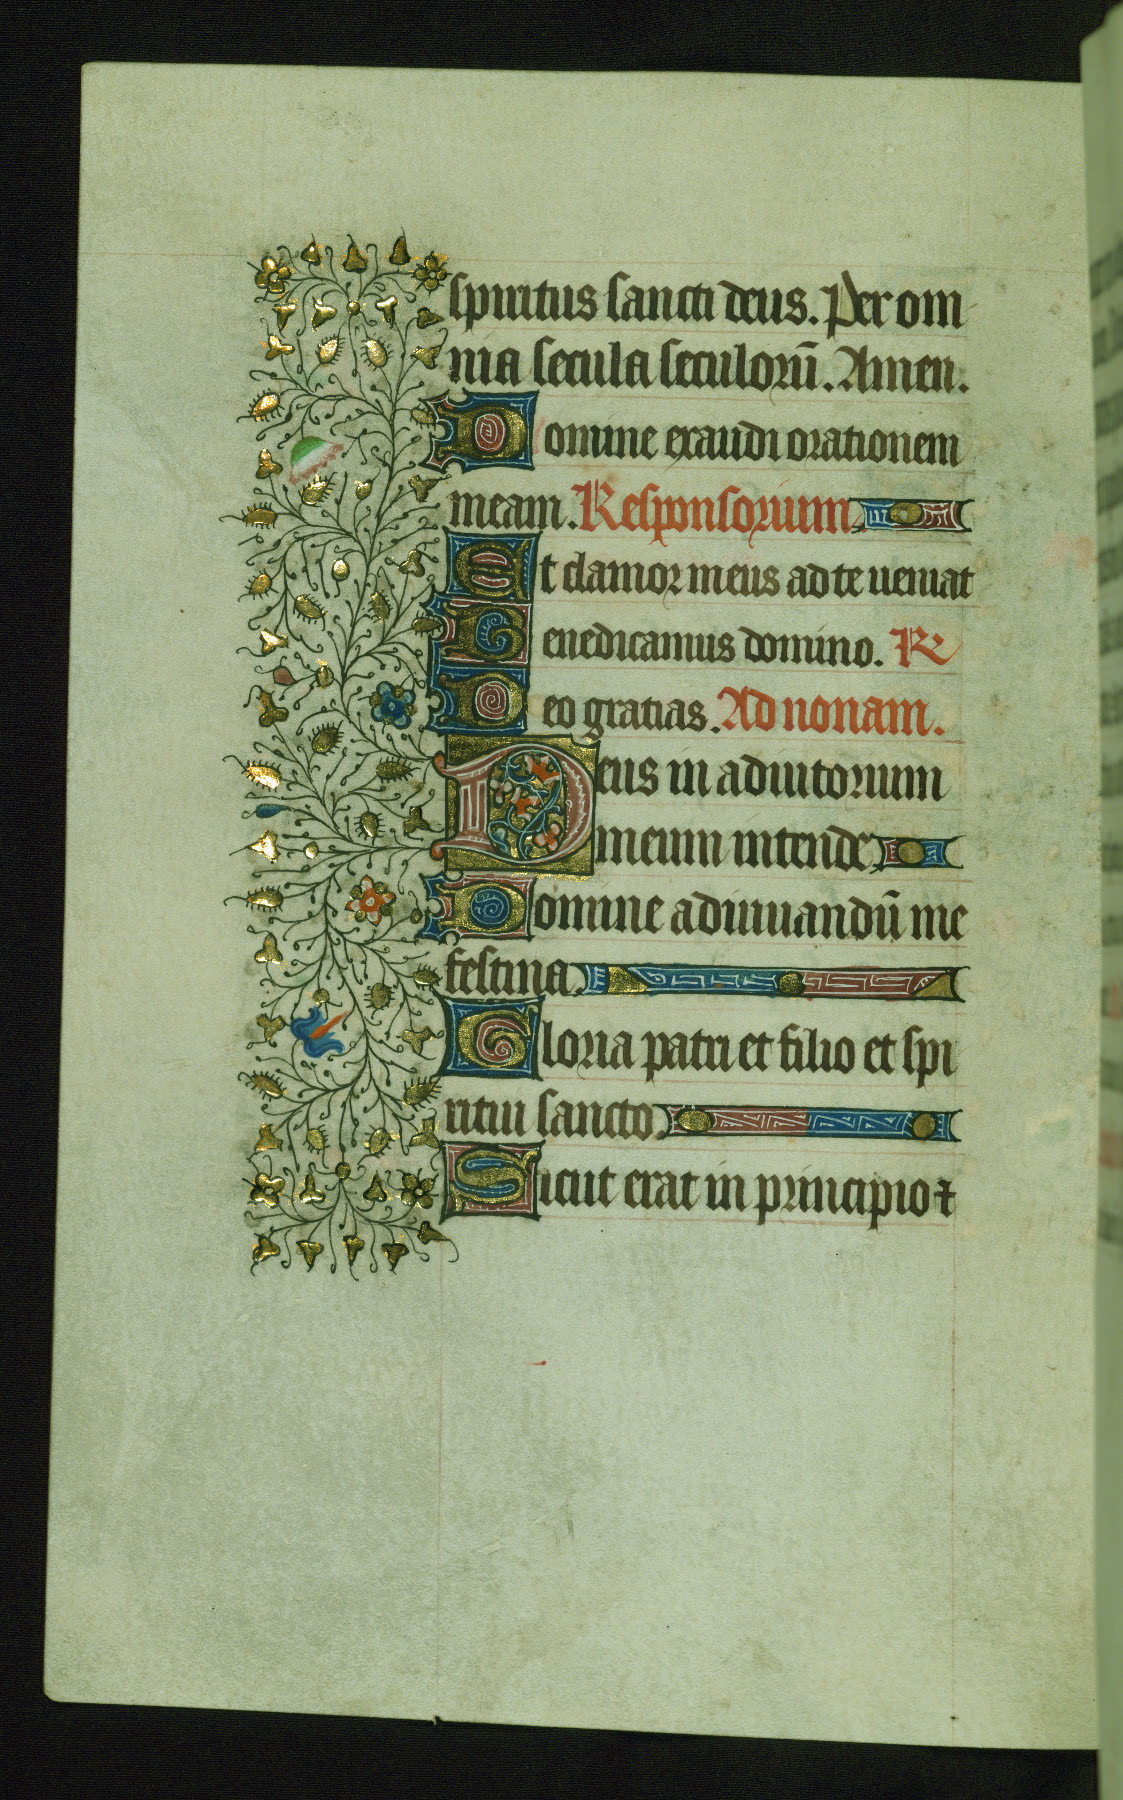 spiritus sancti deus. Per om
nia secula seculorū. Amen.
Domine exaudi orationem
meam. Responsorium
Et clamor meus ad te ueniat
Benedicamus domino. R
Deo gratias. Ad nonam.
Deus in adiutorium
meum intende
Domine adiuuandū me
festina
Gloria patri et filio et spi
ritui sancto
Sicut erat in principio ⁊